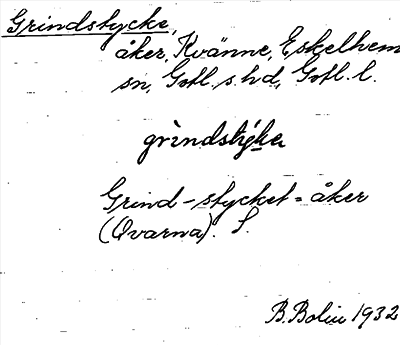 Grindstycke,
åker, Kvänne, Eskelhem
sn, Gotl. s. hd, Gotl. l.
grindstyke
Grind-stycket = åker
(Qvarna). S.
B. Bolin 1932